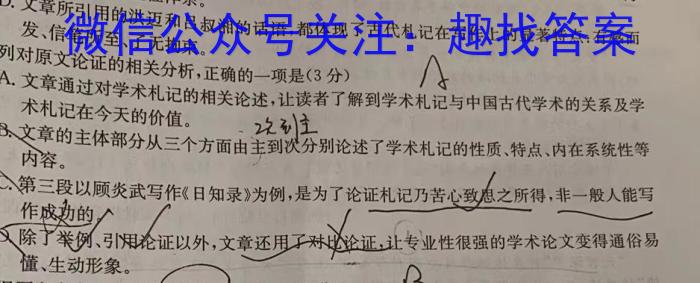 D. 文章所引用的洪迈和吕叔湘的话语,都体现了古代札记在写作上的显著特点:有感而
发、信笔所
微信公众号关注:趣找答案
列对原文论证的相关分析,正确的一项是(3分)
A
A. 文章通过对学术札记的相关论述,让读者了解到学术札记与中国古代学术的关系及学
术札记在今天的价值。
次到主
B. 文章的主体部分从三个方面由主到次分别论述了学术札记的性质、特点、内在系统性等
内容。
C. 第三段以顾炎武写作《日知录》为例,是为了论证札记乃苦心致思之所得,非一般人能写
作成功的。
D. 除了举例、引用论证以外,文章还用了对比论证,让专业性很强的学术论文变得通俗易
懂、生动形象。